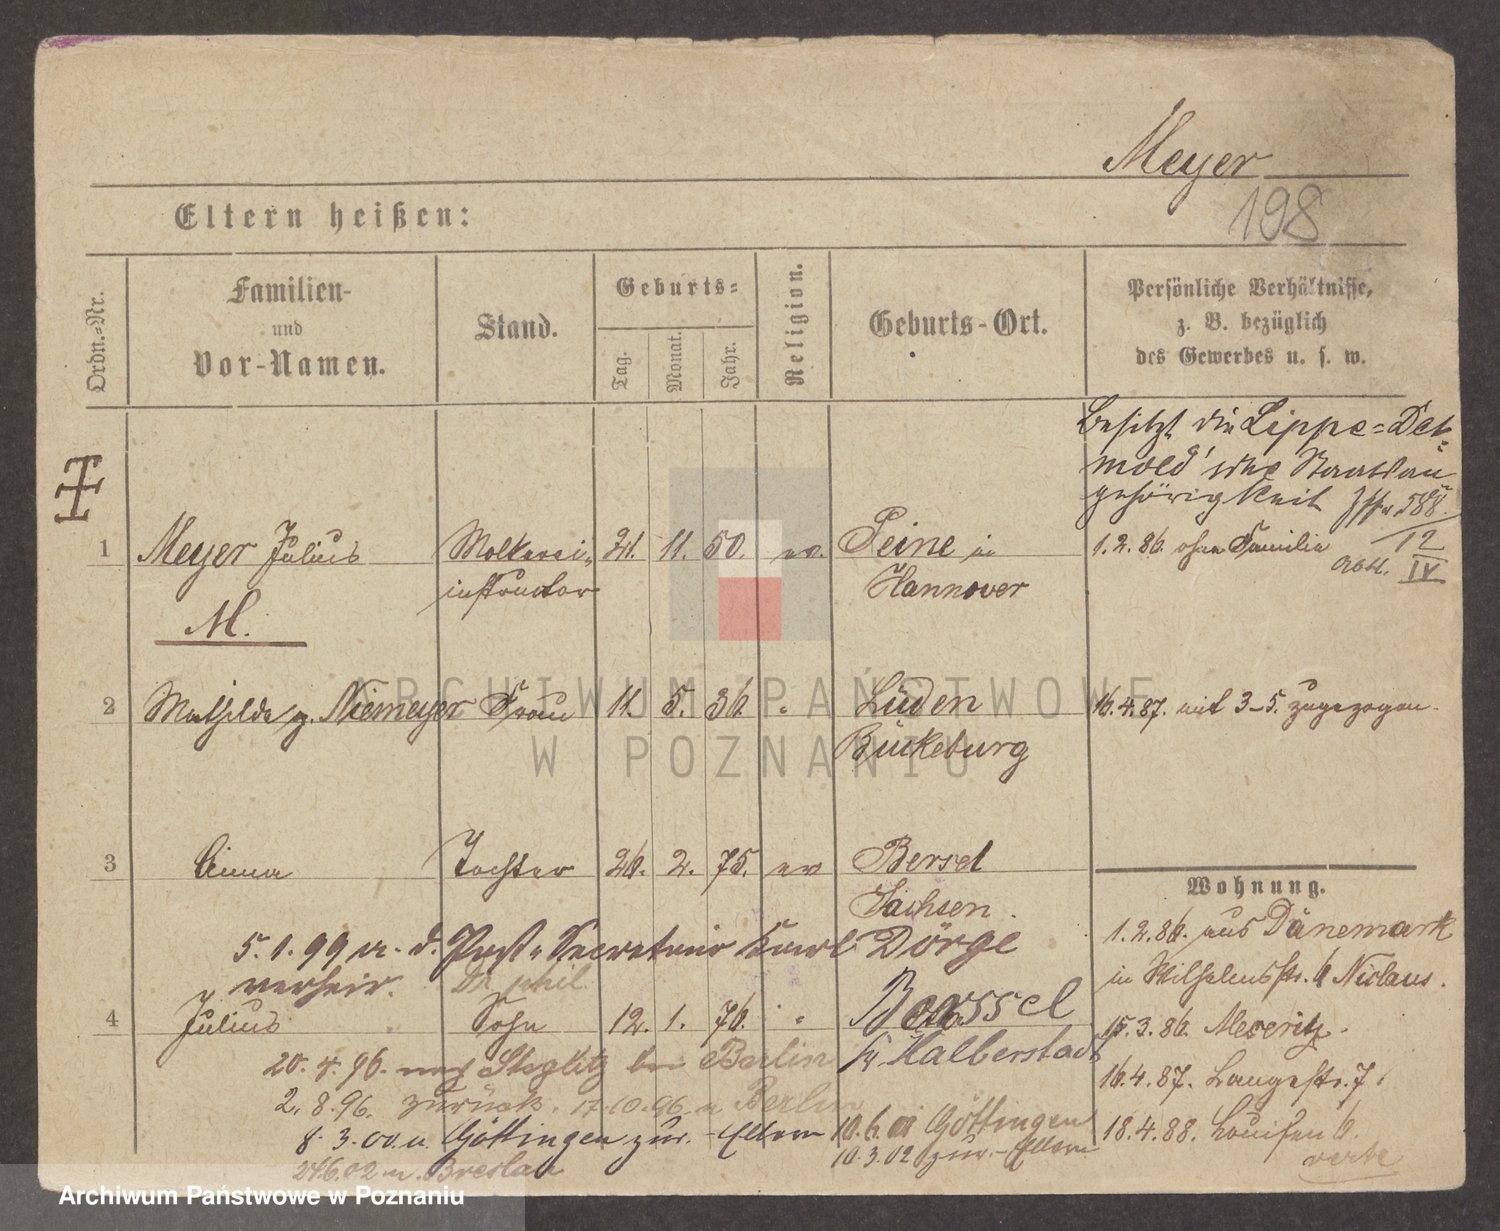 Meyer
198
Eltern heißen:
Ordn.-Nr.
Familien-
und
Vor-Namen.
Stand.
Geburts-
Tag.
Monat.
Jahr.
Religion.
Geburts-Ort.
Persönliche Verhältnisse,
z. B. bezüglich
des Gewerbes u. s. w.
Besitzt die Lippe-Det-
mold'sche Staatsan-
gehörigkeit
588
1 Meyer Julius Molkerei- 21. 11. 50. ev. Peine in 1.2.86. ohne Familie
12
IV
instructor Hannover
M.
2 Mathilde g. Niemeyer Frau 11. 5. 36. " Lüden 16.4.87. mit 3-5. zugezogen.
Bückeburg
3 Anna Tochter 26. 2. 75. ev Bersel
Sachsen.
5.1.99 a. d. Post-Secretair Karl Dörge
verheir. Dr phil
4 Julius Sohn 12. 1. 76. " Berssel
Kr Halberstadt
20.4.96. nach Steglitz bei Berlin
2.8.96. zurück. 17.10.96 n Berlin
8.3.00 n. Göttingen zur. Eltern 10.6.01 Göttingen
10.3.02 zur. Eltern
24.6.02 n. Breslau
Wohnung.
1.2.86. aus Dänemark
in Wilhelmsstr. 6 Niclaus.
15.3.86. Meseritz.
16.4.87. Langestr. 7.
18.4.88. Louisen 6.
verte
ARCHIWUM PAŃSTWOWE
W POZNANIU
Archiwum Państwowe w Poznaniu